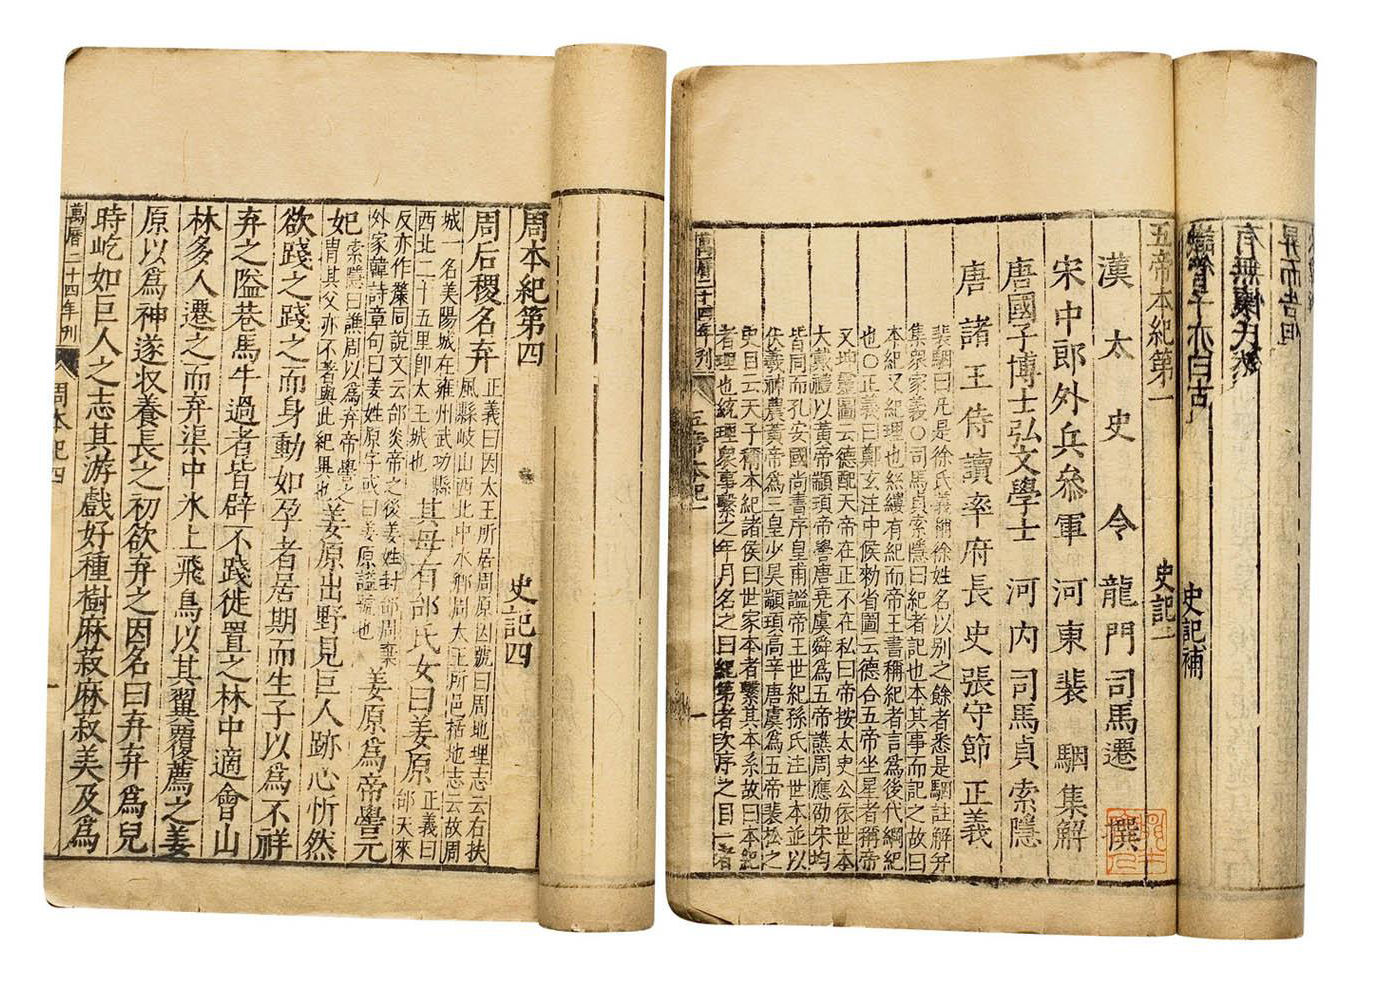 有無懷氏然
管子亦曰古
史記補
五帝本紀第一 史記一
漢太史令龍門司馬遷 撰
宋中郎外兵參軍 河東裴駰集解
唐國子博士弘文學士 河內司馬貞索隱
唐諸王侍讀率府長史張守節正義
裴駰曰凡是徐氏義稱徐姓名以別之餘者悉是駰註解并
集衆家義○司馬貞索隱曰紀者記也本其事而記之故曰
本紀又紀理也絲縷有紀而帝王書稱紀者言爲後代綱紀
也○正義曰鄭玄注中候勑省圖云德合五帝坐星者稱帝
又坤靈圖云德配天帝在正不在私曰帝按太史公依世本
大戴禮以黃帝顓頊帝嚳唐堯虞舜爲五帝譙周應劭宋均
皆同而孔安國尚書序皇甫謐帝王世紀孫氏注世本並以
伏羲神農黃帝爲三皇少昊顓頊高辛唐虞爲五帝裴松之
史目云天子稱本紀諸侯曰世家本者繫其本系故曰本紀
者理也統理衆事繫之年月名之曰紀第者次序之目一者
萬曆二十四年刋 五帝本紀一 一
周本紀第四 史記四
周后稷名弃 正義曰因太王所居周原因號曰周地理志云右扶
風縣岐山西北中水鄉周太王所邑括地志云故周
城一名美陽城在雍州武功縣
西北二十五里卽太王城也 其母有邰氏女曰姜原 正義曰
邰天來
反亦作斄同說文云邰炎帝之後姜姓封邰周棄
外家韓詩章句曰姜姓原字或曰姜原謚號也 姜原爲帝嚳元
妃 索隱曰譙周以爲弃帝嚳之
胄其父亦不著與此紀異也 姜原出野見巨人跡心忻然
欲踐之踐之而身動如孕者居期而生子以爲不祥
弃之隘巷馬牛過者皆辟不踐徙置之林中適會山
林多人遷之而弃渠中氷上飛鳥以其翼覆薦之姜
原以爲神遂收養長之初欲弃之因名曰弃弃爲兒
時屹如巨人之志其游戲好種樹麻菽麻菽美及爲
萬曆二十四年刋 周本紀四 一